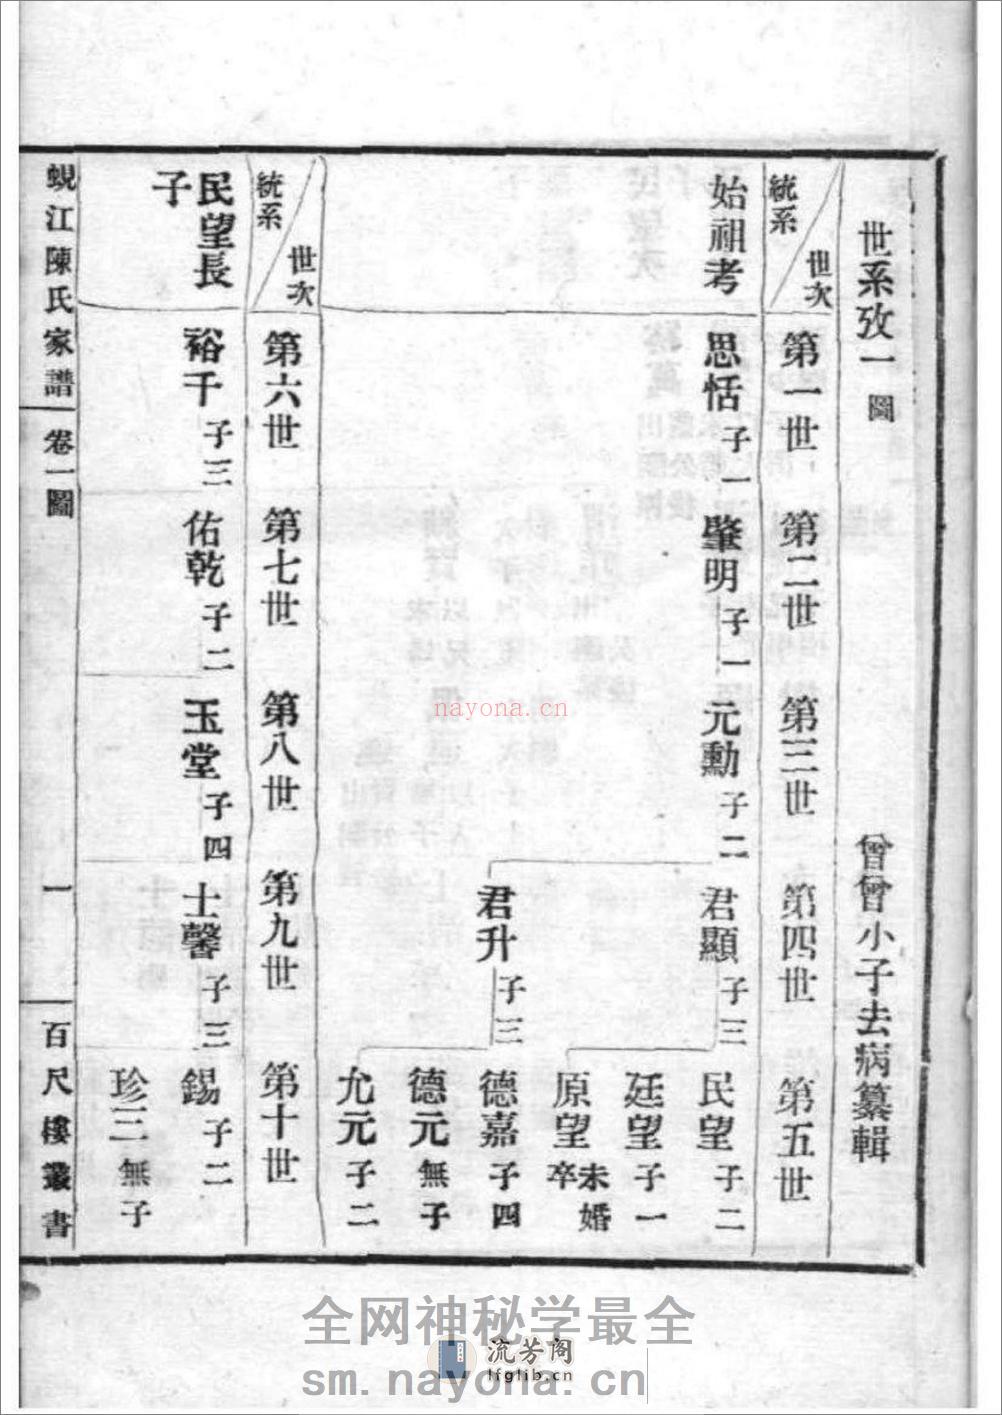 世系攷一 圖
曾曾小子去病纂輯
統系 世次
第一世
第二世
第三世
第四世
第五世
始祖考
思恬 子一
肇明 子一
元勳 子二
君顯 子三
民望 子二
廷望 子一
原望 未婚卒
君升 子三
德嘉 子四
德元 無子
允元 子二
統系 世次
第六世
第七世
第八世
第九世
第十世
民望長子
裕千 子三
佑乾 子二
玉堂 子四
士馨 子三
錫 子二
珍三 無子
蜆江陳氏家譜 卷一圖
一
百尺樓叢書
nayona.cn
全网神秘学最全
流芳阁
lfglib.cn
sm.nayona.cn